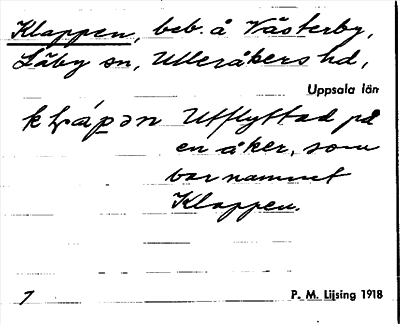 Klappen, beb. å Västerby,
Läby sn, Ulleråkers hd,
Uppsala län
Utflyttad på
en åker, som
bar namnet
Klappen.
7 P. M. Liljsing 1918